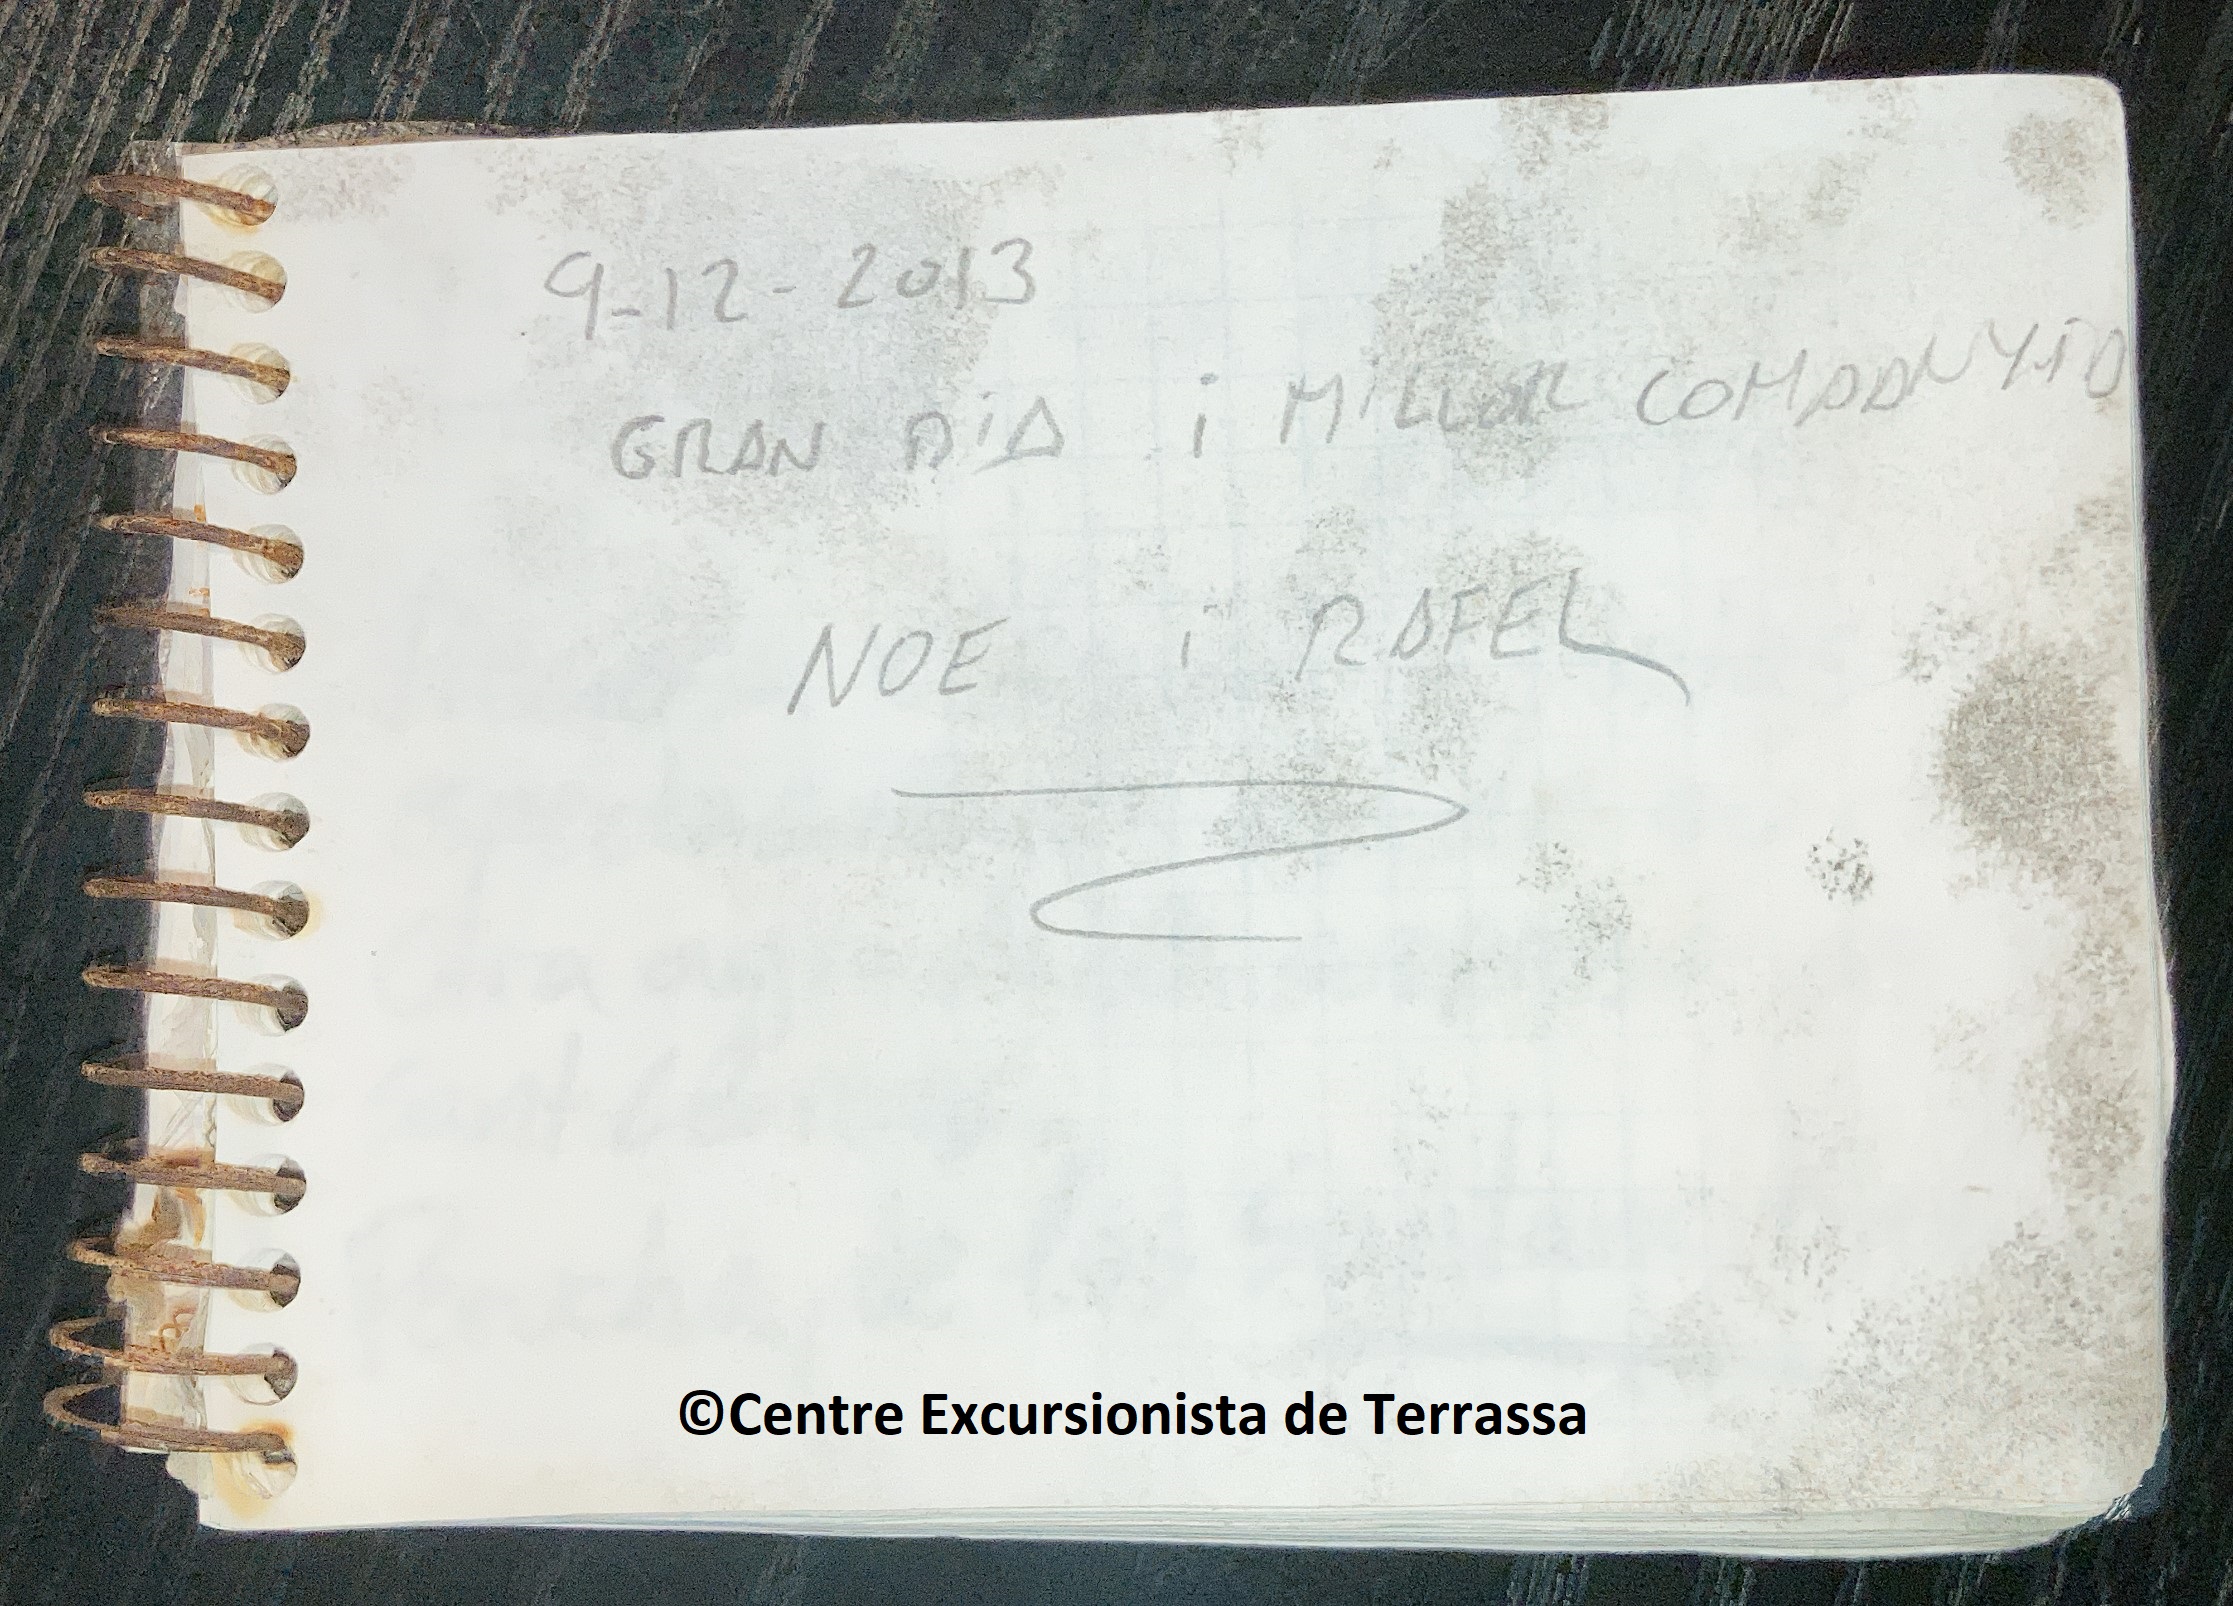 9-12-2013
GRAN DIA i MILLOR COMPANYIA
NOE i RAFEL
©Centre Excursionista de Terrassa